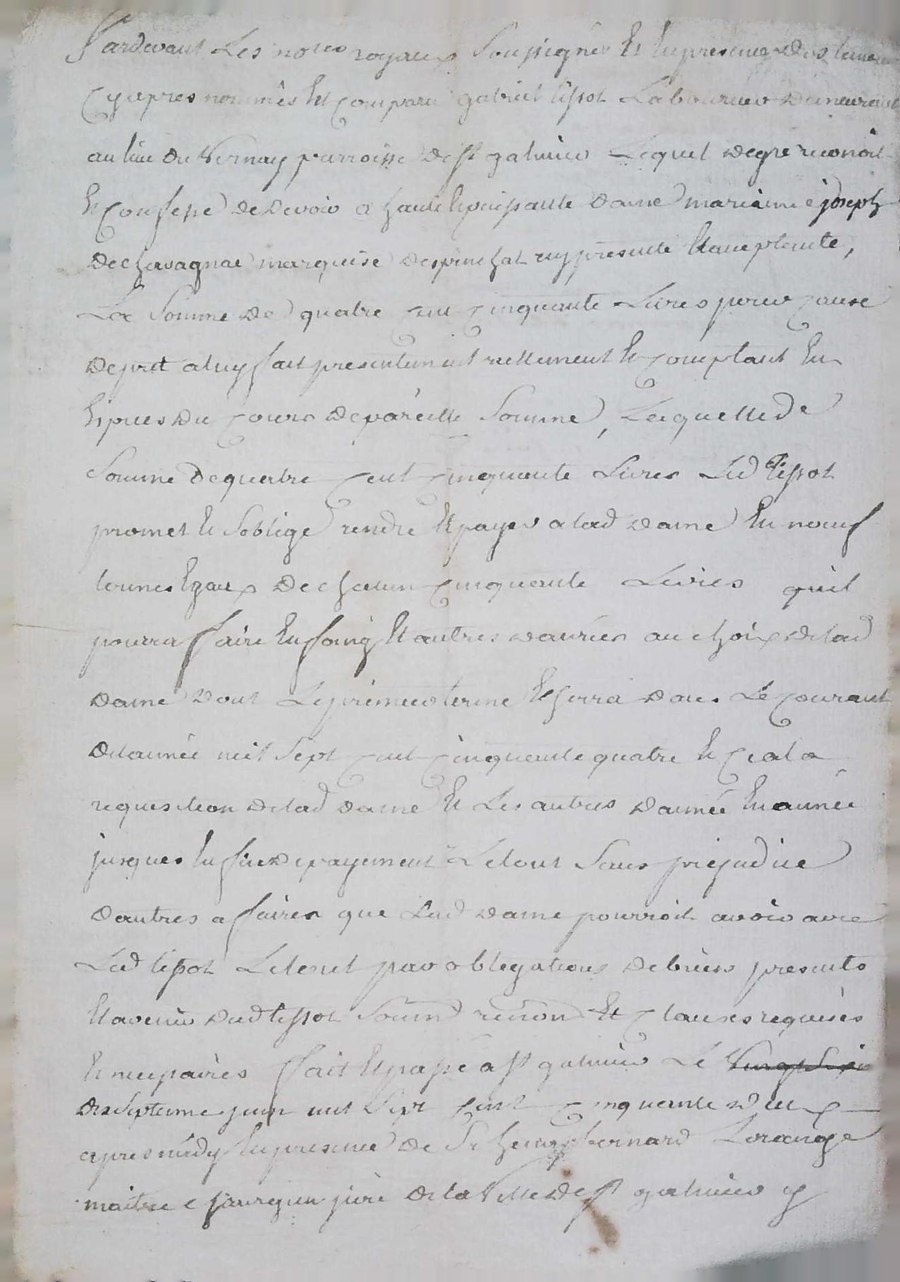 Pardevant Les notes royaux Soussignés Et En presence des temoins
Cyapres nommés Est Comparu gabriel tissot Laboureur demeurant
au lieu du Vernay parroisse de st galmier Lequel degré reconoit
Et Confesse de devoir a haute Et puissante dame marianne joseph
de chavagnac marquise despinchat icy presente Et aceptante,
La Somme de quatre cent Cinquante Livres pour Cause
de pret a luy fait presentement reellement Et Comptant En
Espices du Cours de pareille Somme, Laquelle de
Somme de quatre Cent Cinquante Livres Led tissot
promet Et Soblige rendre Et payer a lad dame En noeuf
termes Egaux de chacun Cinquante Livres quil
pourra ffaire En foing Et autres danrées au choix de lad
dame dont Le premier terme Echerra dans Le Courant
de lannée mil Sept Cent Cinquante quatre Et Cea la
requesition de lad dame Et Les autres dannée En année
jusques En fin de payement Le tout Sans prejudice
dautres affaires que Lad dame pourroit avoir avec
Led tissot Le tout par obligations de biens presents
Et avenir dud tissot Soumd renond Et Clauses requises
Et necessaires ffait Et passé a st galmier Le
dix Septieme juin mil Sept Cent Cinquante deux
apres midy En presence de Sr henry bernard Lorange
maitre chirurgien juré de la Ville de st galmier